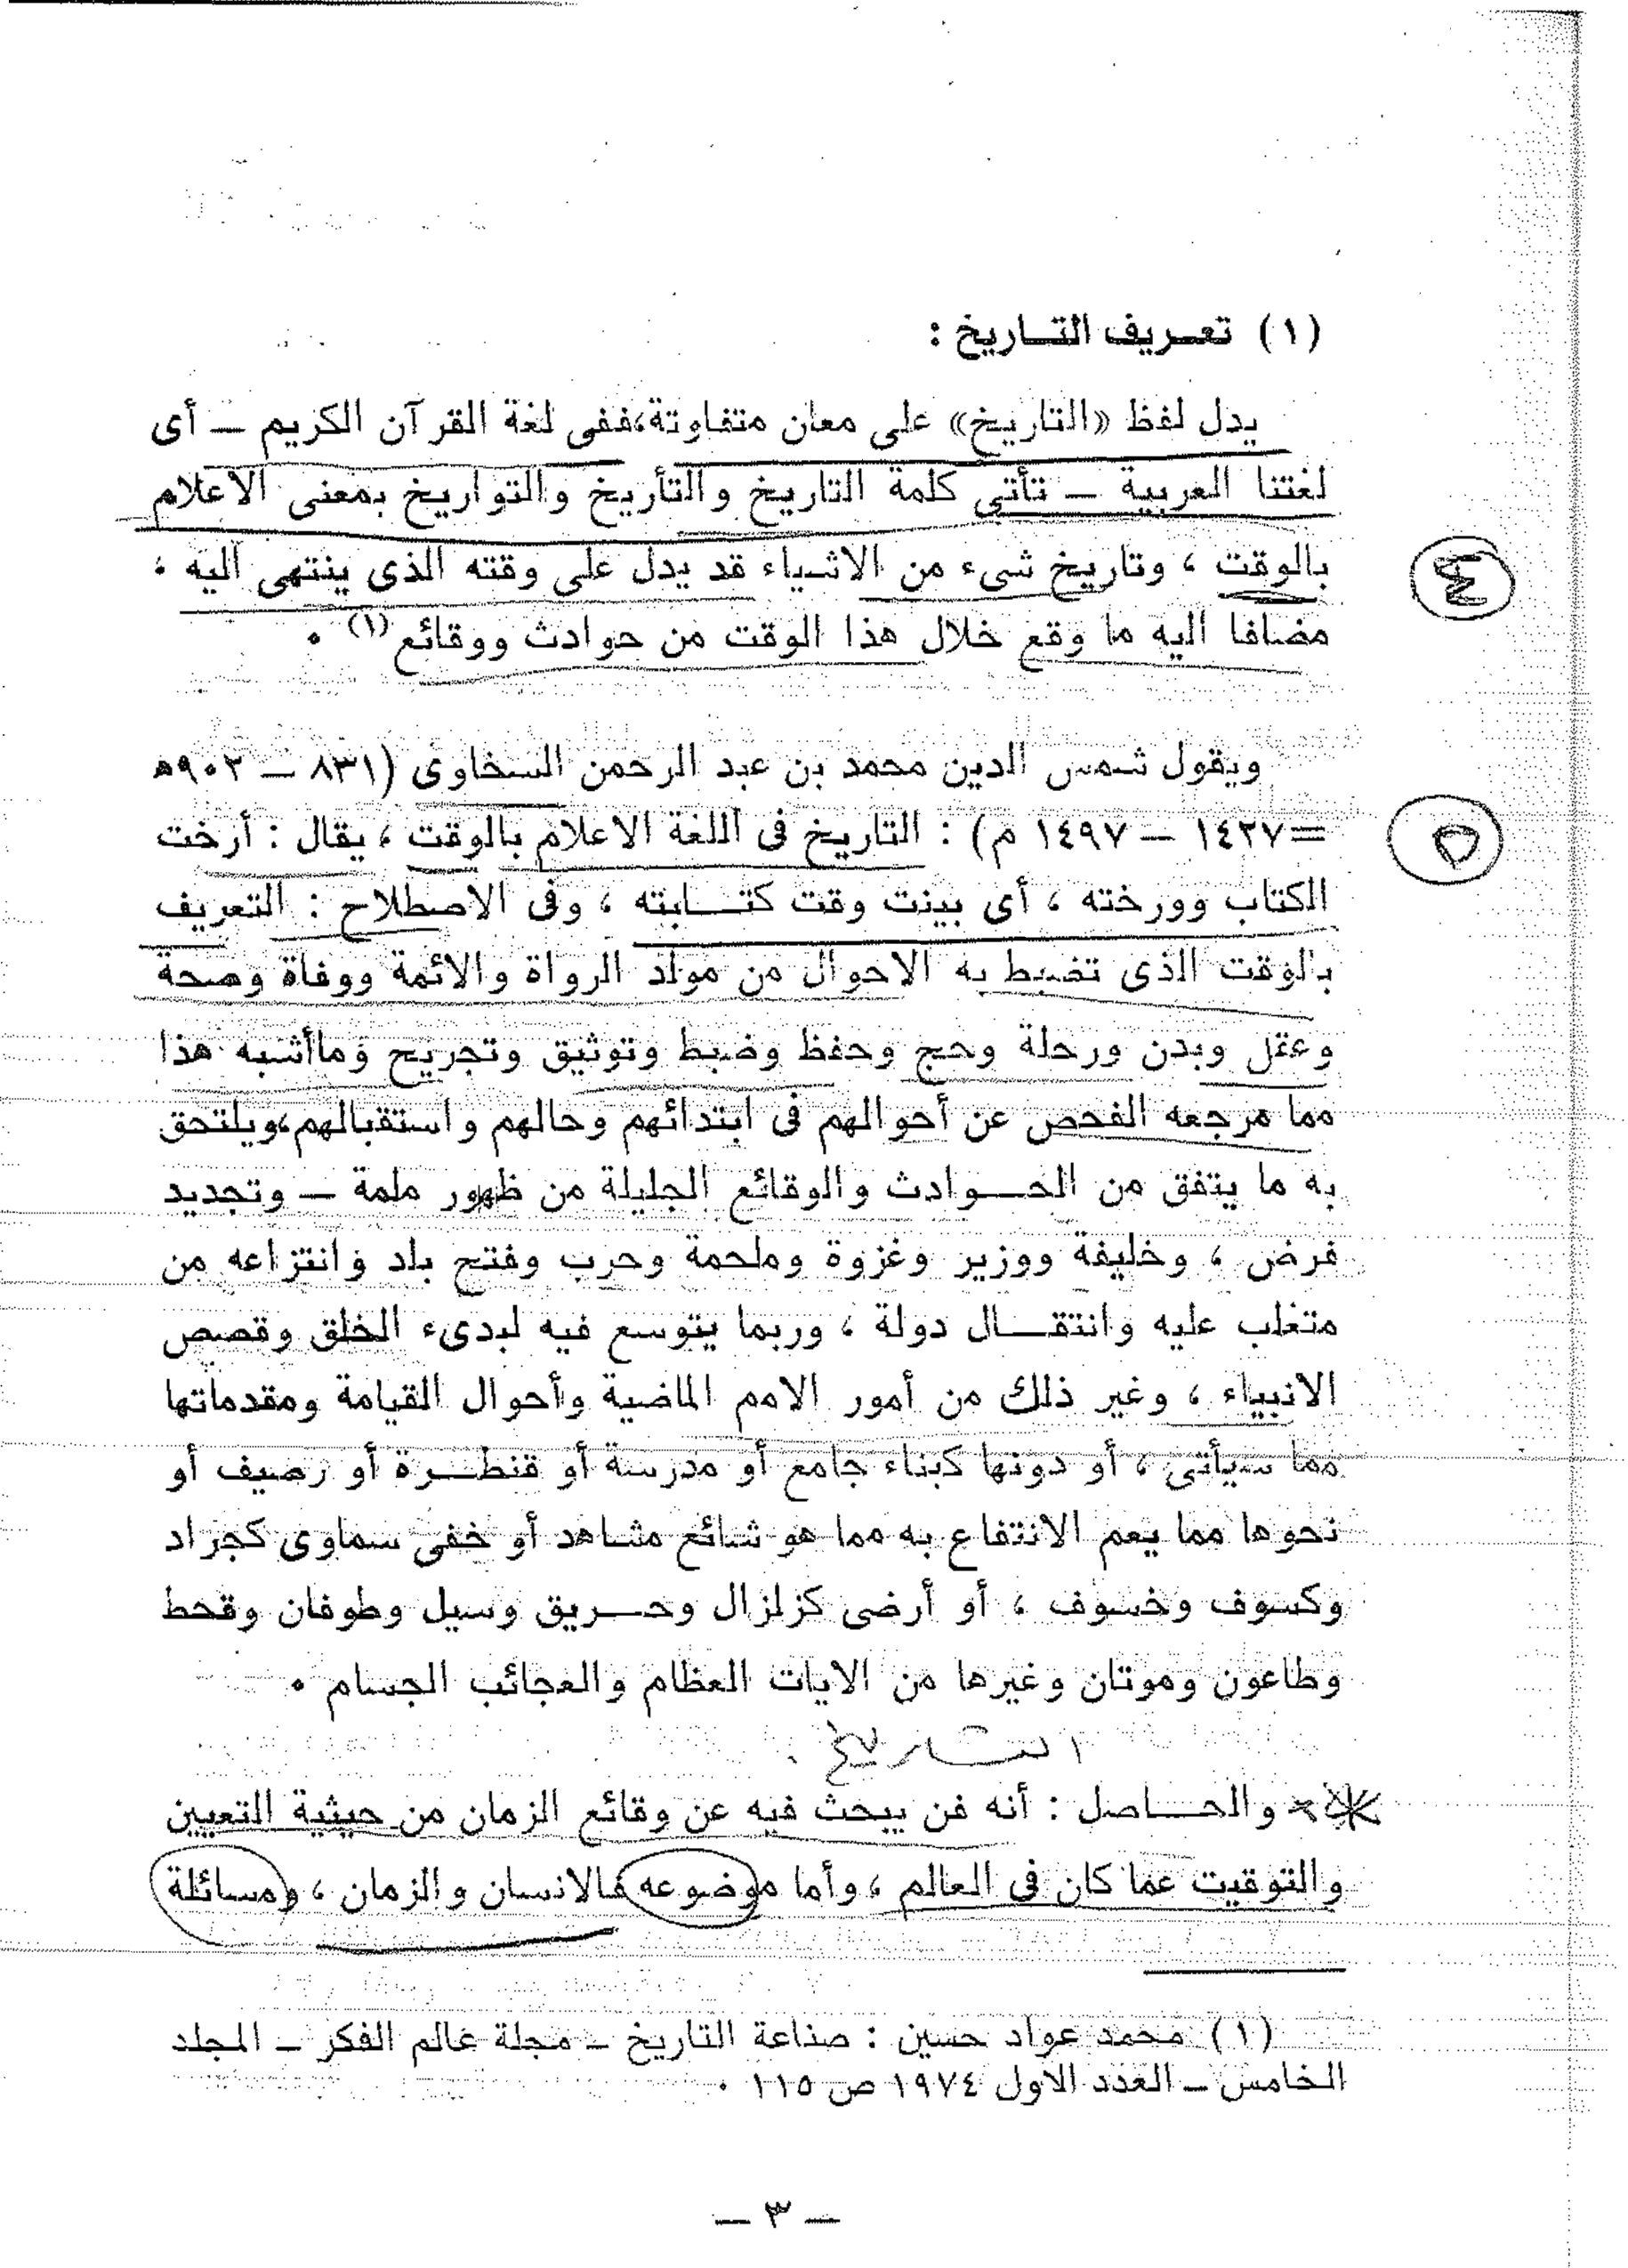 (١) تعـريف التـاريخ :
يدل لفظ «التاريخ» على معان متفاوتة، ففى لغة القرآن الكريم ـ أى
لغتنا العربية ـ تأتى كلمة التاريخ والتأريخ والتواريخ بمعنى الاعلام
بالوقت ، وتاريخ شىء من الاشياء قد يدل على وقته الذى ينتهى اليه ،
مضافا اليه ما وقع خلال هذا الوقت من حوادث ووقائع (١) ٠
٤
ويقول شمس الدين محمد بن عبد الرحمن السخاوى (٨٣١ ـ ٩٠٢ه
= ١٤٢٧ ـ ١٤٩٧ م) : التاريخ فى اللغة الاعلام بالوقت ، يقال : أرخت
٥
الكتاب وورخته ، أى بينت وقت كتـــابته ، وفى الاصطلاح : التعريف
بالوقت الذى تضبط به الاحوال من مولد الرواة والائمة ووفاة وصحة
وعقل وبدن ورحلة وحج وحفظ وضبط وتوثيق وتجريح وماأشبه هذا
مما مرجعه الفحص عن أحوالهم فى ابتدائهم وحالهم واستقبالهم، ويلتحق
به ما يتفق من الحـــوادث والوقائع الجليلة من ظهور ملمة ـ وتجديد
فرض ، وخليفة ووزير وغزوة وملحمة وحرب وفتح بلد وانتزاعه من
متغلب عليه وانتقـــال دولة ، وربما يتوسع فيه لبدىء الخلق وقصص
الانبياء ، وغير ذلك من أمور الامم الماضية وأحوال القيامة ومقدماتها
مما سيأتى ، أو دونها كبناء جامع أو مدرسة أو قنطـــرة أو رصيف أو
نحوها مما يعم الانتفاع به مما هو شائع مشاهد أو خفى سماوى كجراد
وكسوف وخسوف ، أو أرضى كزلزال وحـــريق وسيل وطوفان وقحط
وطاعون وموتان وغيرها من الايات العظام والعجائب الجسام ٠
التاريخ
والحـــاصل : أنه فن يبحث فيه عن وقائع الزمان من حيثية التعيين
والتوقيت عما كان فى العالم ، وأما موضوعه فالانسان والزمان ، ومسائلة
(١) محمد عواد حسين : صناعة التاريخ ـ مجلة عالم الفكر ـ المجلد
الخامس ـ العدد الاول ١٩٧٤ ص ١١٥ ٠
ـ ٣ ـ